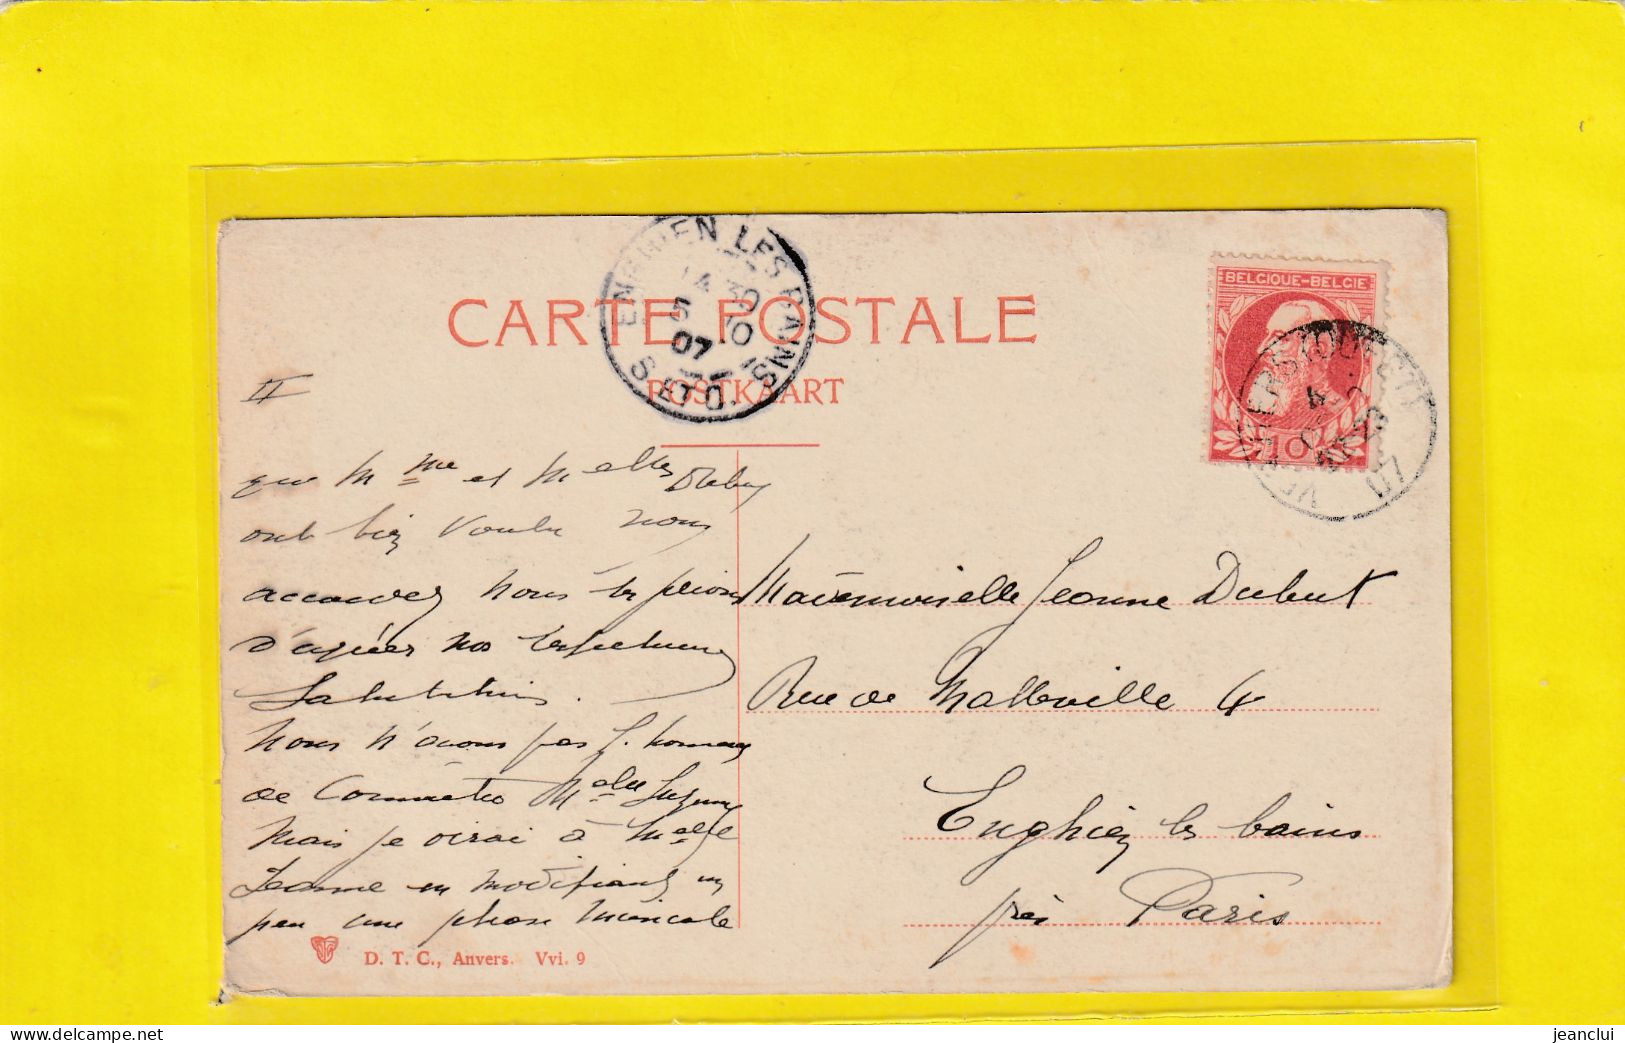 ENGHIEN LES BAINS
14 30
5 10
07
S. ET O.
CARTE POSTALE
POSTKAART
BELGIQUE-BELGIE
10
VERVIERS (OUEST)
II
que M me et Melles
ont bien voulu nous
accorder, nous les prions
d'agréer nos respectueuses
salutations.
Nous n'avons pas l'honneur
de connaître Melle Suzanne
mais je dirai à Melle
Jeanne en modifiant un
peu une phrase musicale
Mademoiselle Jeanne Dubut
Rue de Malleville 4
Enghien les bains
près Paris
D. T. C., Anvers. Vvi. 9
jeanclui